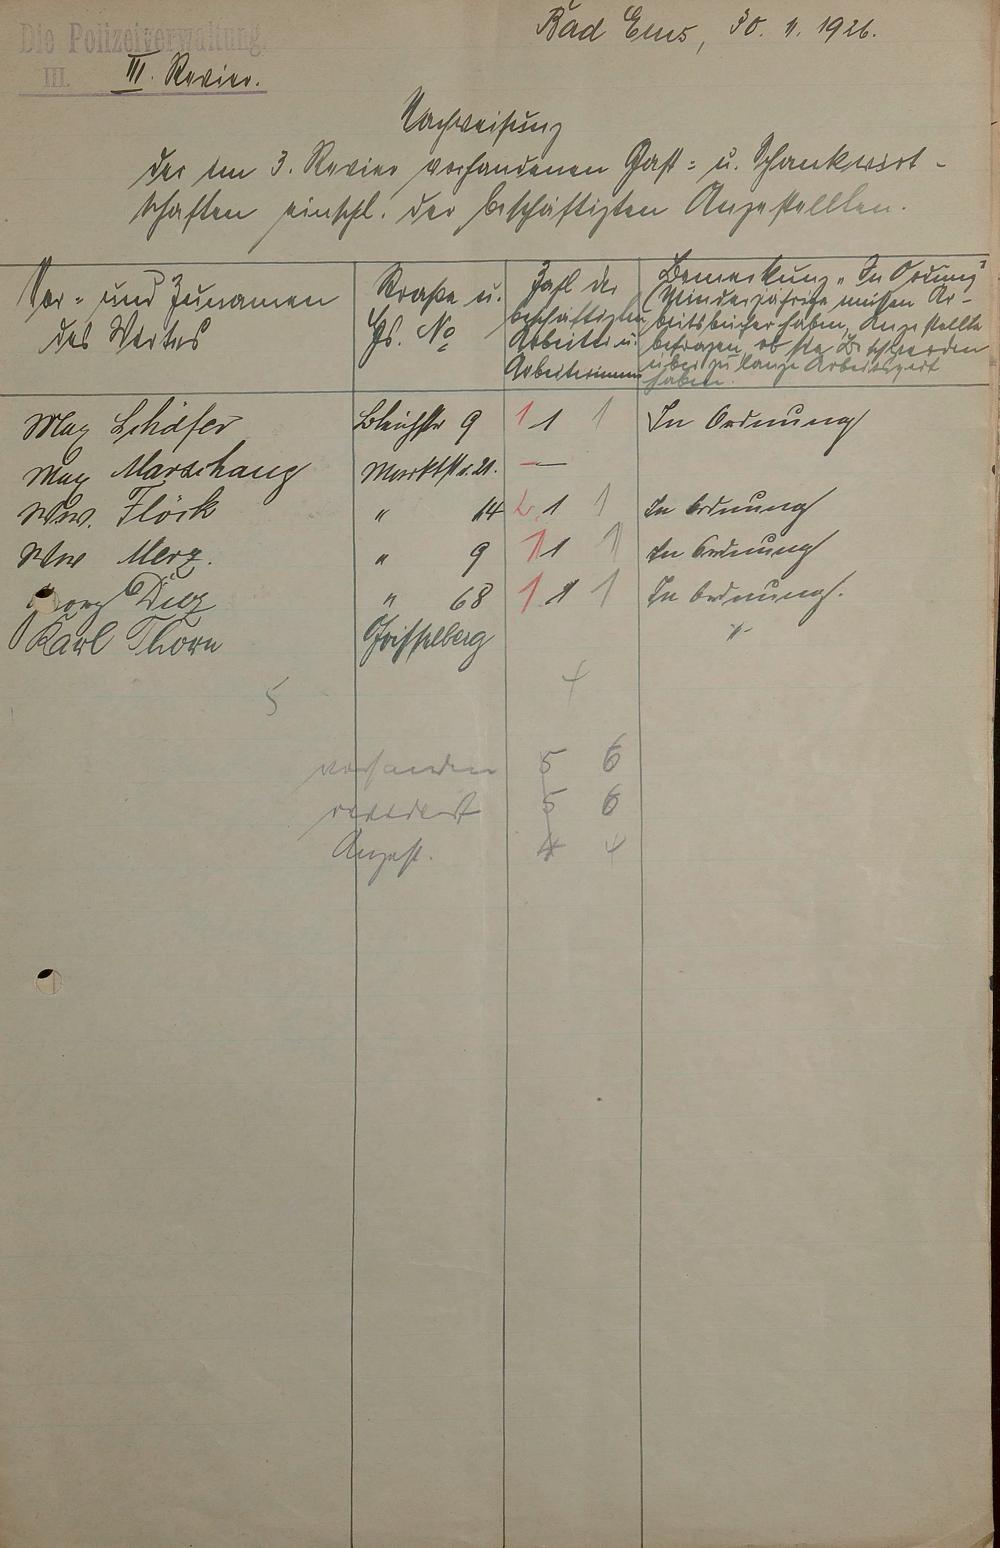 Die Polizeiverwaltung.
III. III. Revier.
Bad Ems, 30. 11. 1926.
Nachweisung
der im 3. Revier vorhandenen Gast- u. Schankwirt-
schaften einschl. der beschäftigten Angestellten.
Vor- und Zunamen
des Wirtes
Straße u.
Hs. No
Zahl der
beschäftigten
Arbeiter u.
Arbeiterinnen
Bemerkung "In Ordnung"
(Minderjährige müssen Ar-
beitsbücher haben, Angestellte
befragen ob sie Beschwerden
über zu lange Arbeitszeit
haben.
Max Schäfer Bleichstr 9 1 1 1 In Ordnung
Max Marschang Marktstr. 21. —
Ww. Flöck " 14 2 1 1 In Ordnung
Ww Merz. " 9 1 1 1 In Ordnung
Georg Diez " 68 1 1 1 In Ordnung.
Karl Thorn Grisselberg "
5 4
vorhanden 5 6
revidiert 5 6
Angest. 4 4